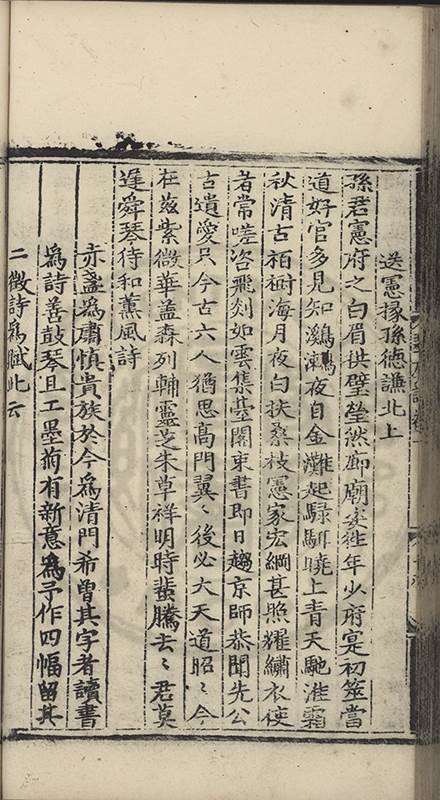 送憲掾孫德謙北上
孫君憲府之白眉拱璧瑩然廊廟姿往年少府寔初筵當
道好官多見知鸂鶒夜自金灘起騄駬曉上青天馳淮霜
秋清古栢樹海月夜白扶桑枝憲家宏綱甚照耀繡衣使
者常嗟咨飛剡如雲集臺閣束書即日趨京師恭聞先公
古遺愛只今古六人猶思高門翼〻後必大天道昭〻今
在茲紫微華盖森列輔靈芝朱草祥明時蜚騰去〻君莫
遲舜琴待和薰風詩
赤盞爲肅慎貴族於今爲清門希曾其字者讀書
爲詩善鼓琴且工墨菊有新意爲予作四幅留其
二徵詩爲賦此云